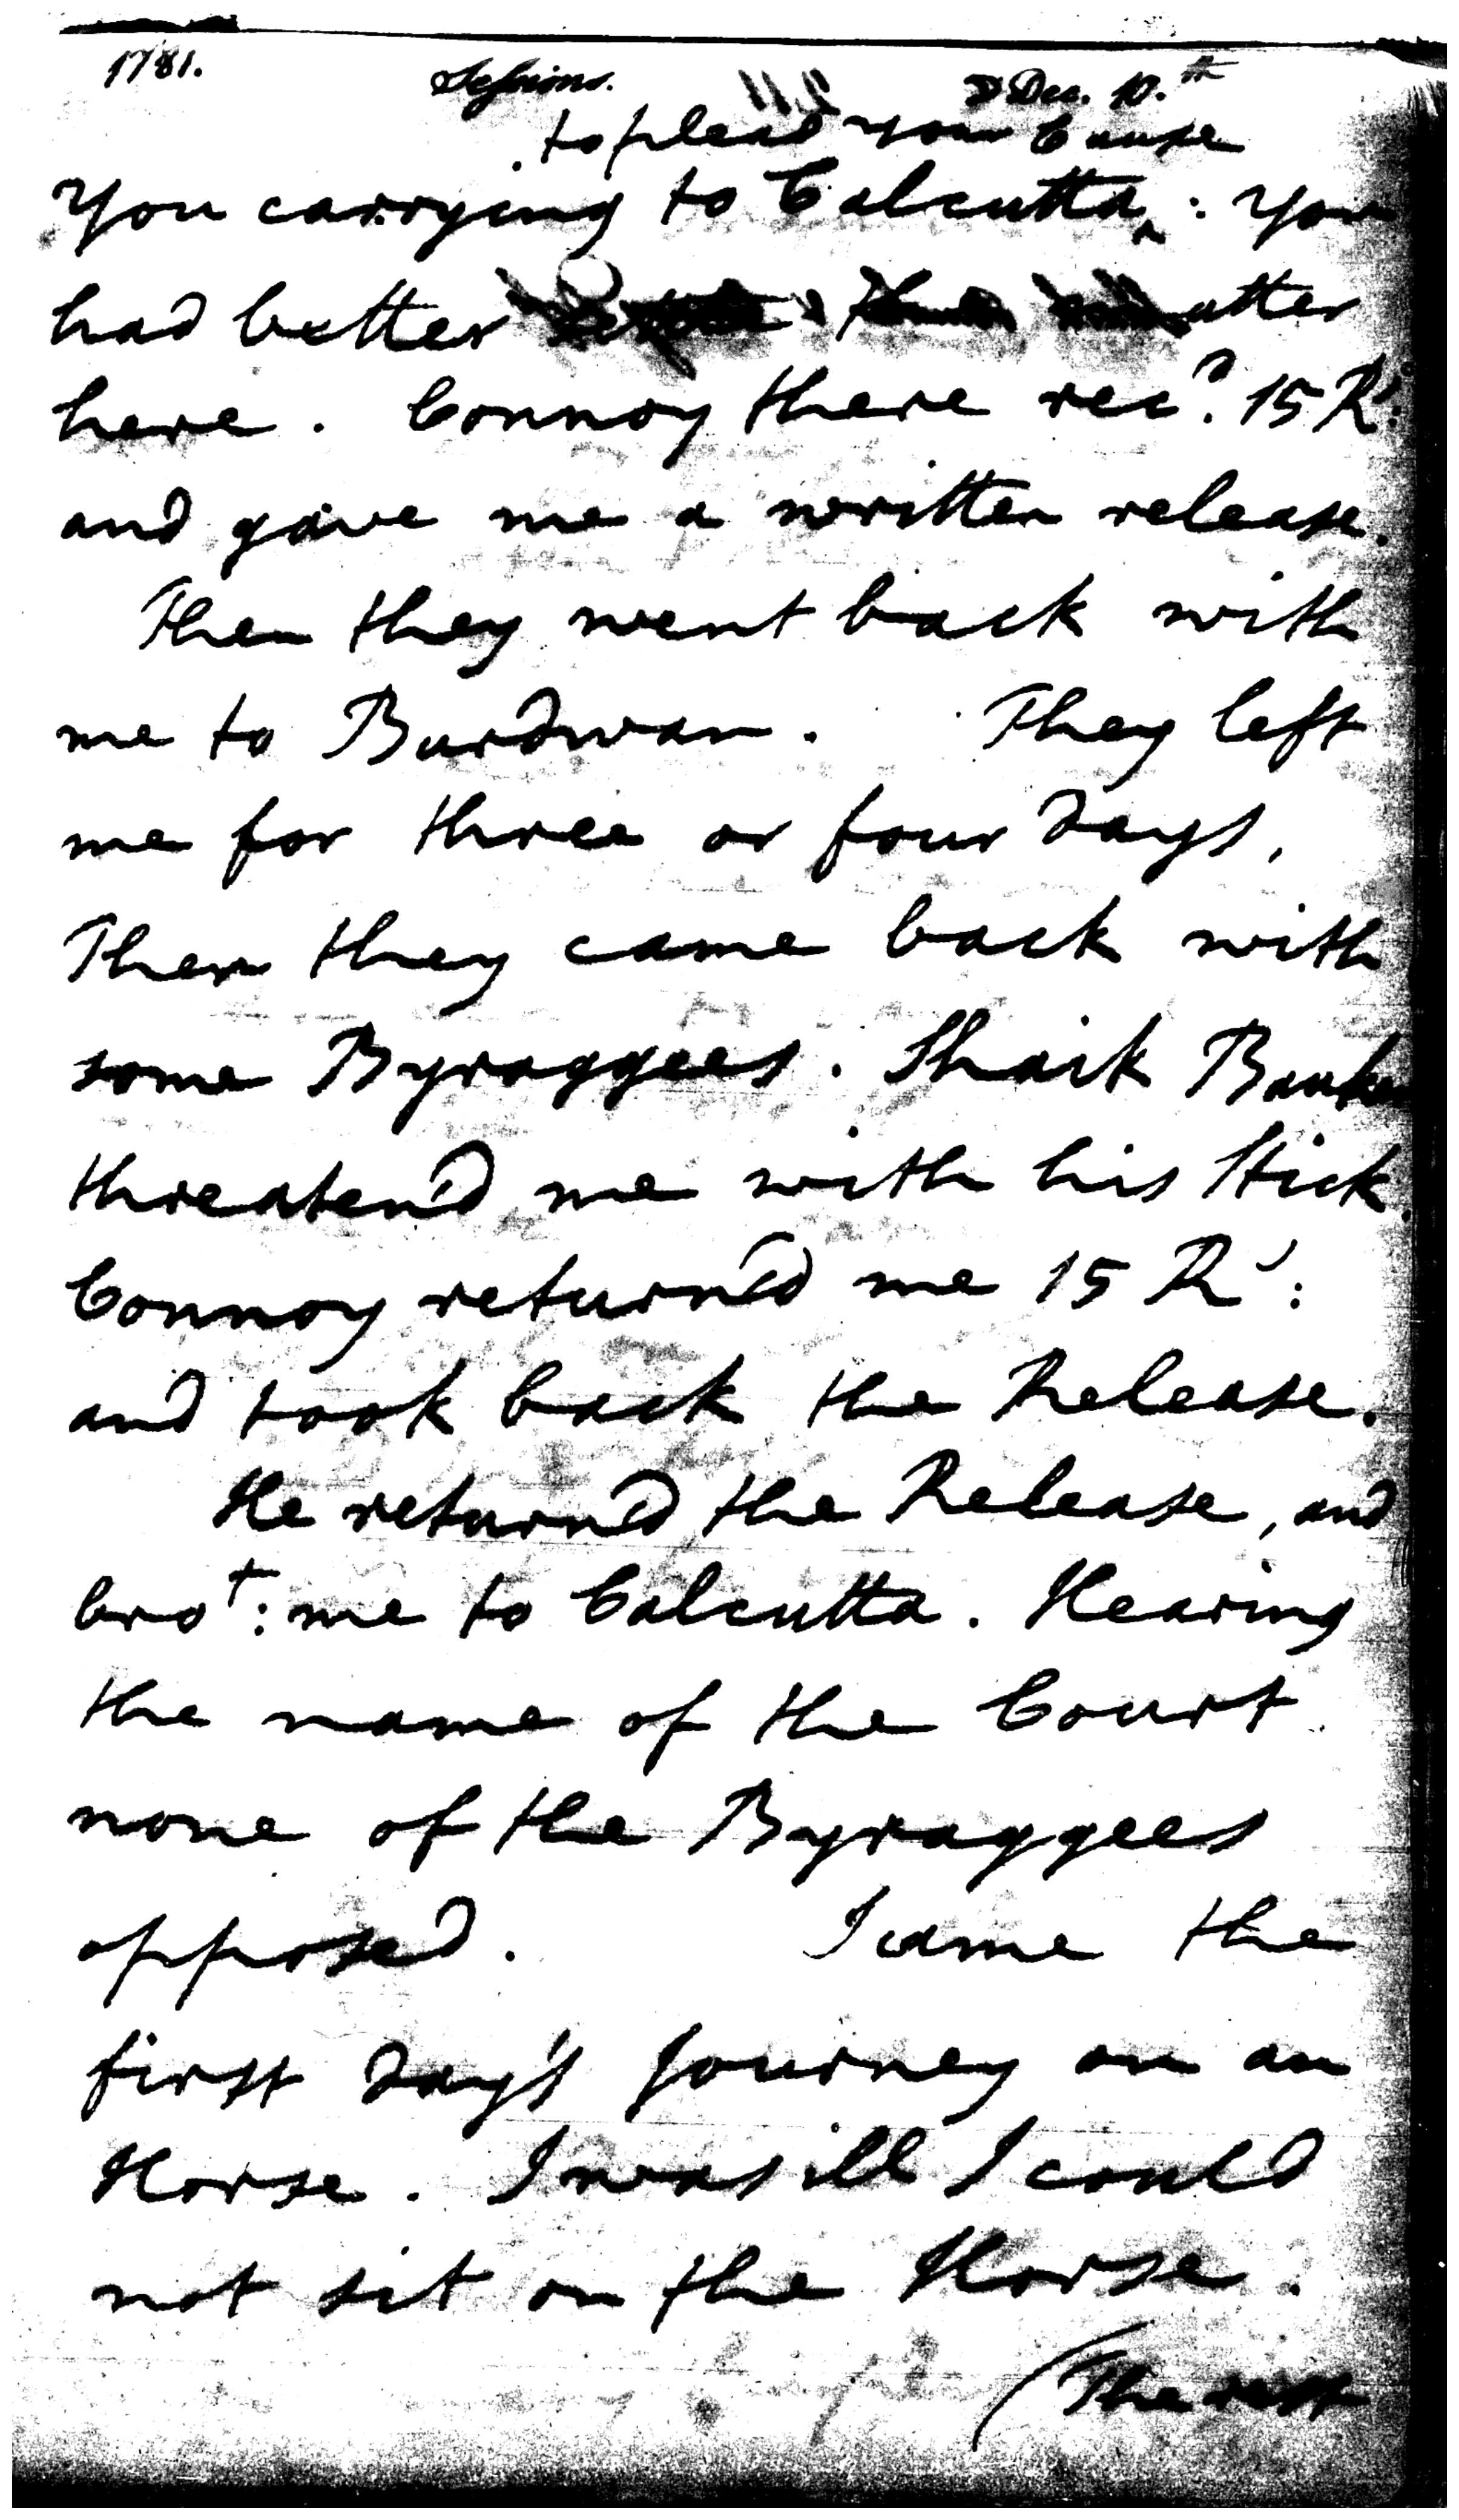 1781. Sessions. Dec. 10.th
to plead your Cause
You carrying to Calcutta ^ : you
had better settle the matter
here. Connoy there recd. 15 Rs:
and gave me a written release.
Then they went back with
me to Burdwan. They left
me for three or four days,
Then they came back with
some Byraggees. Shaik
threaten'd me with his Stick.
Connoy return'd me 15 Rs:
and took back the Release.
He return'd the Release, and
brot: me to Calcutta. Hearing
the name of the Court
none of the Byraggees
opposed. I came the
first day's journey on an
Horse. I was ill I could
not sit on the Horse.
(The rest